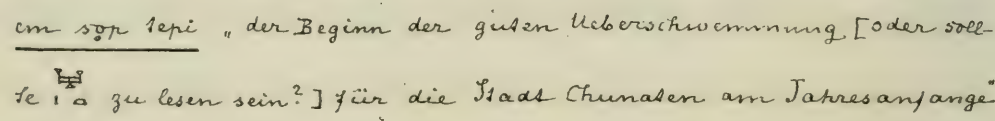 em sop tepi „der Beginn der guten Ueberschwemmung [oder soll-
te zu lesen sein?] für die Stadt Chunaten am Jahresanfange"